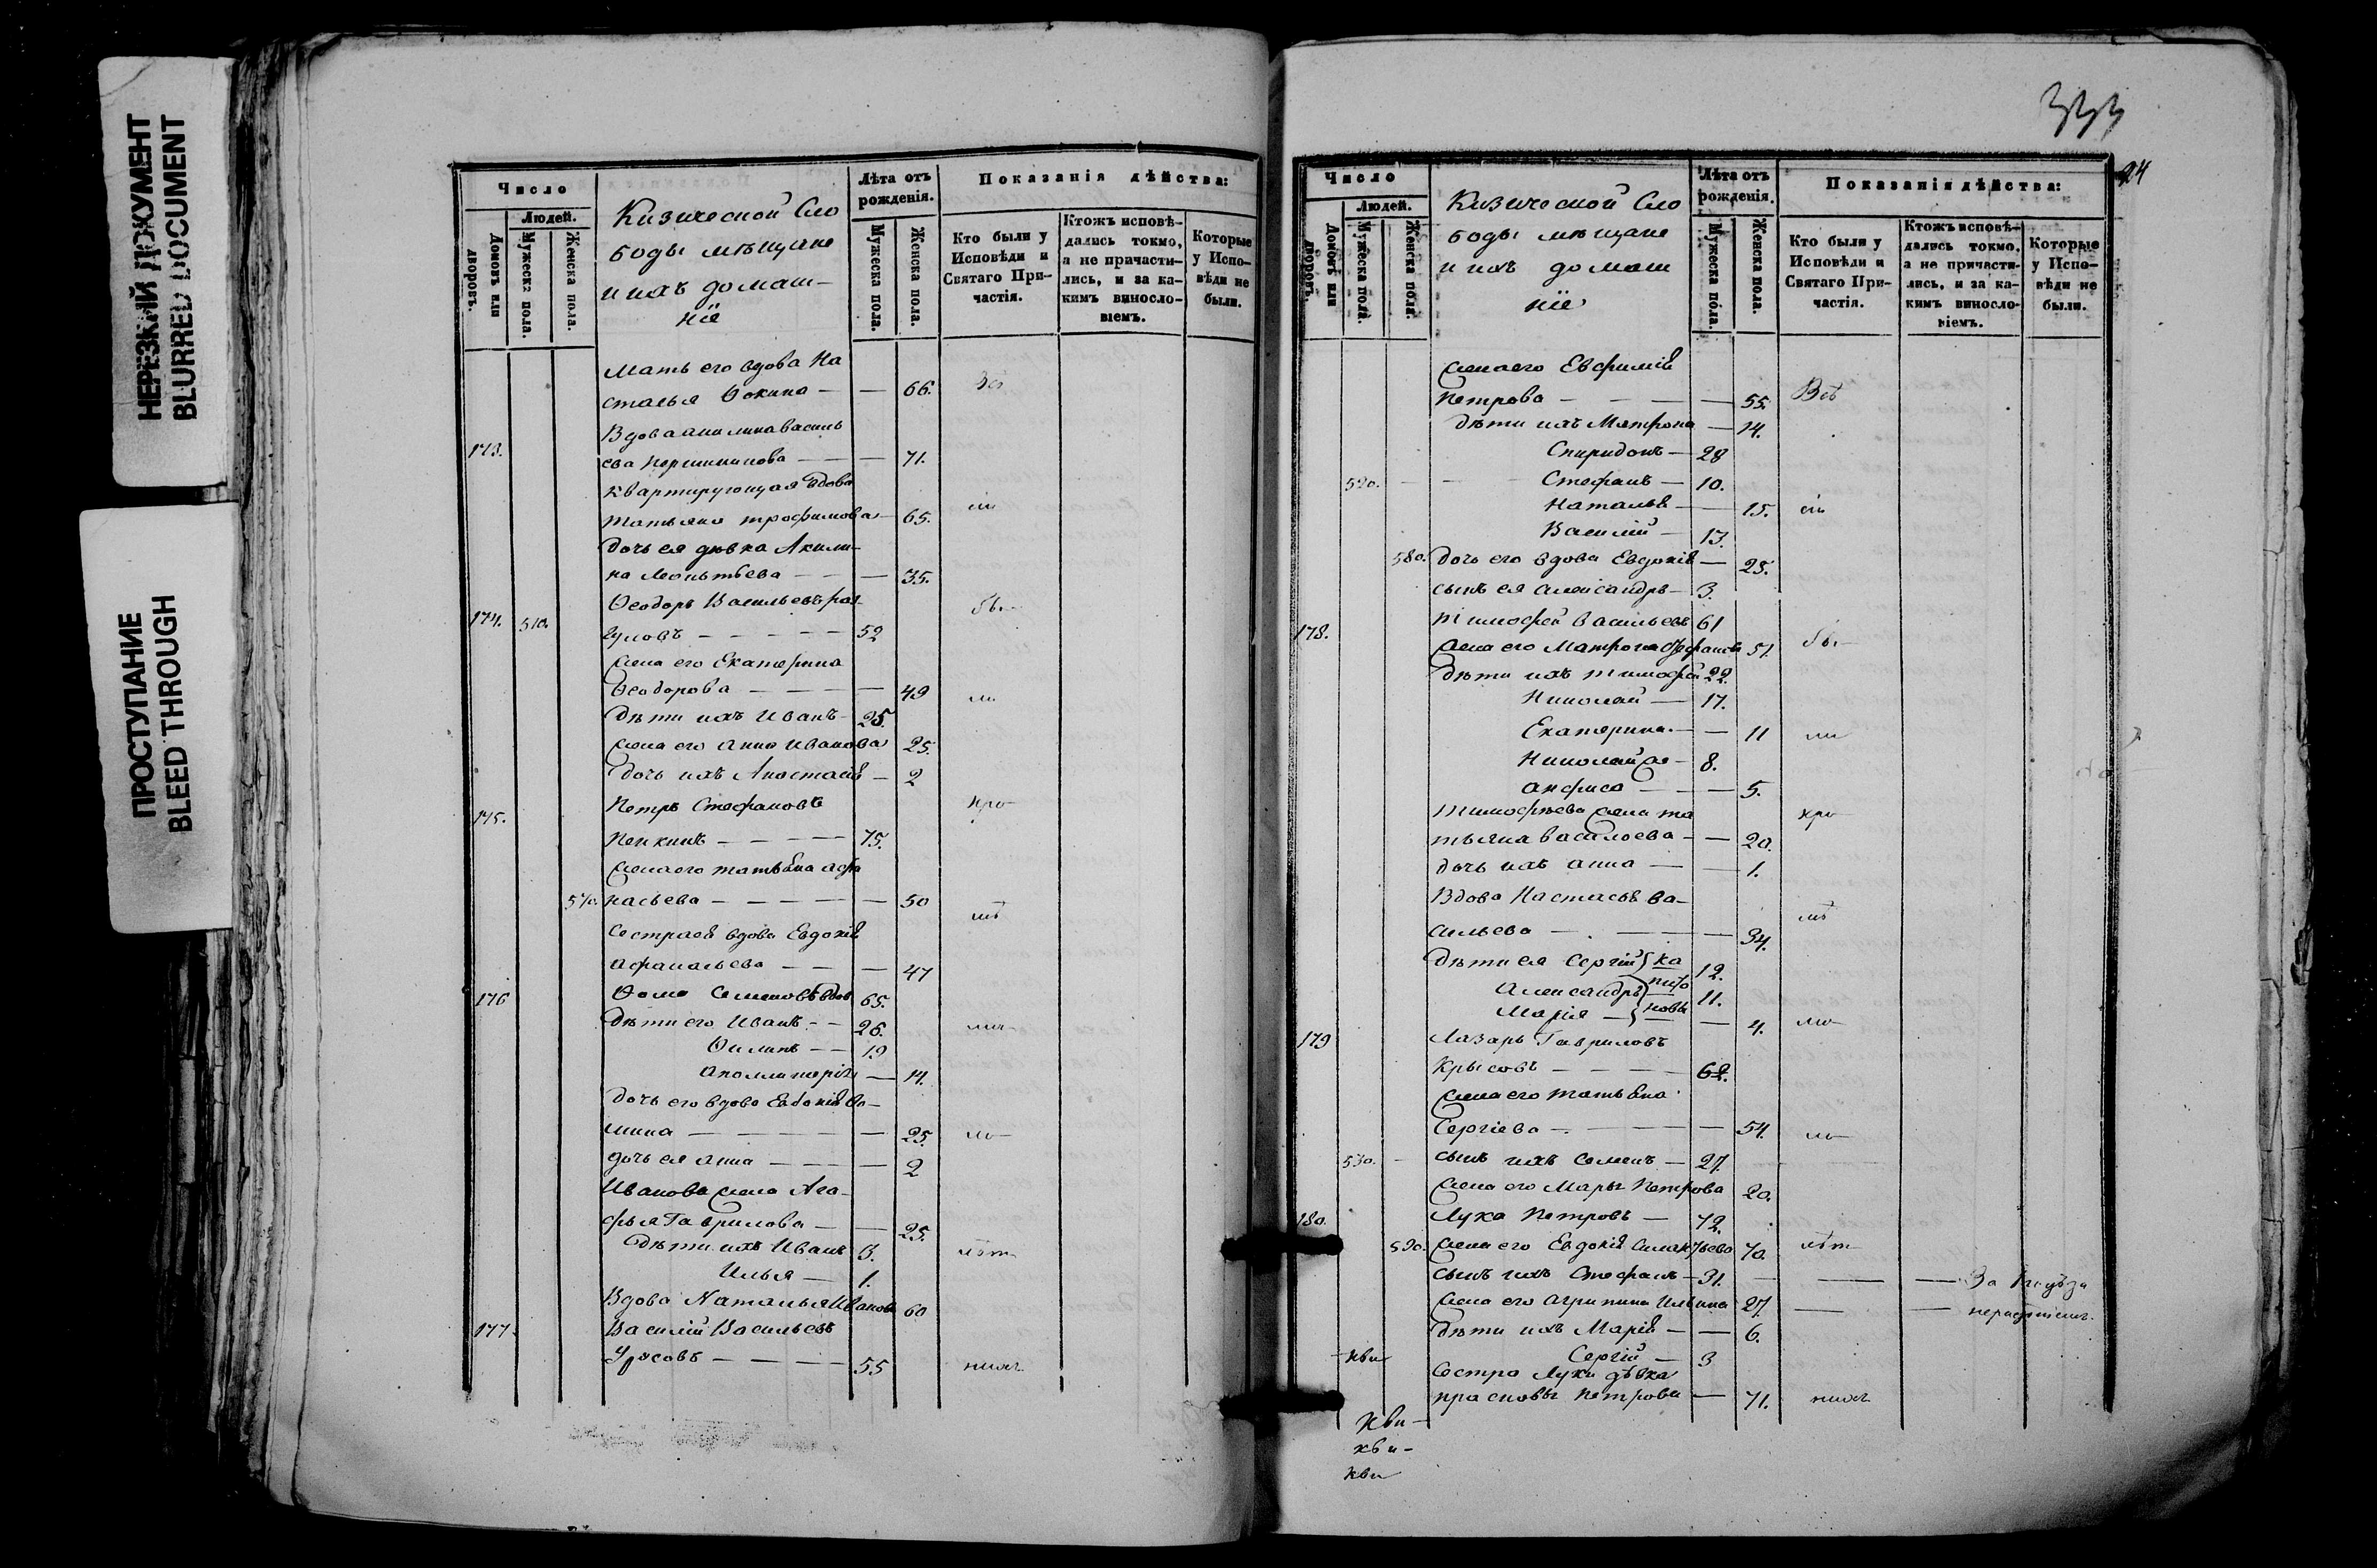 НЕРЕЗКИЙ ДОКУМЕНТ
BLURRED DOCUMENT
ПРОСТУПАНИЕ
BLEED THROUGH
Число
Людей.
Домовъ или дворовъ.
Мужеска пола.
Женска пола.
Кизической Сло
боды мѣщане
и ихъ домаш-
ніе
Лѣта отъ рожденія.
Мужеска пола.
Женска пола.
Показанія дѣйства:
Кто были у Исповѣди и Святаго Причастія.
Ктожъ исповѣдались токмо, а не причастились, и за какимъ винословіемъ.
Которые у Исповѣди не были.
Мать его вдова На
стасья Ѳокина — — 66. Всѣ
173. Вдова Акилина Василь
ева — — 71.
квартирующая вдова
Татьяна Трофимова — 65.
дочь ея дѣвка Акили-
на Леонтьева — — — 35.
174. 510. Ѳеодоръ Васильевъ
— — — 52 бы-
жена его Екатерина
Ѳеодорова — — — — 49 ли
дѣти ихъ Иванъ — 25.
жена его Анна Иванова 25.
дочь ихъ Анастасія — 2
175. Петръ Стефановъ
Пенкинъ — — — — 75. при-
жена его Татьяна Афа
570. насьева — — — — — 50
сестра ея вдова Евдокія
Афанасьева — — — 47
176 Ѳома Семеновъ вдов 65.
дѣти его Иванъ — — 26.
Филипъ — — 19
Аполлинарія — 14.
дочь его вдова Евдокія Ѳо-
мина — — — — — 25.
дочь ея Анна — — — — 2
Иванова жена Ага-
фья Гаврилова — — 25.
дѣти ихъ Иванъ 3.
Илья — 1.
Вдова Наталья Иванова 60
177. Василій Васильевъ
Урясовъ — — — — 55
333
24
Число
Людей.
Домовъ или дворовъ.
Мужеска пола.
Женска пола.
Кизической Сло
боды мѣщане
и ихъ домаш
ніе
Лѣта отъ рожденія.
Мужеска пола.
Женска пола.
Показанія дѣйства:
Кто были у Исповѣди и Святаго Причастія.
Ктожъ исповѣдались токмо, а не причастились, и за какимъ винословіемъ.
Которые у Исповѣди не были.
жена его Евфимія
Петрова — — — — 55. Всѣ
дѣти ихъ Матрона — 14.
Спиридонъ — 28
520. — — Стефанъ — 10.
Наталья — — 15. сіи
Василій — 13.
580. дочь его вдова Евдокія — 25.
сынъ ея Александръ — 3.
178. Тимофей Васильевъ 61
жена его Матрона 51. бы-
дѣти ихъ Тимофей 22.
Николай — 17.
Екатерина — — 11 ли
Николай же — 8.
Анфиса — — — 5.
Тимофѣева жена Та
тьяна Васильева — — 20.
дочь ихъ Анна — — 1.
Вдова Настасья Ва-
сильева — — — — 34.
дѣти ея Сергій 12.
Александръ 11.
Марія — — 4.
179 Лазарь Гавриловъ
Крысовъ — — — 62.
жена его Татьяна
Сергіева — — — — 54.
530. — сынъ ихъ Семенъ — 27.
жена его Марья Петрова 20.
180. Лука Петровъ — 72.
590. жена его Евдокія 70.
сынъ ихъ Стефанъ — 31. — — — За
жена его Агрипина Ильина 27 — —
дѣти ихъ Марія — — 6.
Сергій — 3
сестра Луки дѣвка
Прасковья Петрова — 71.